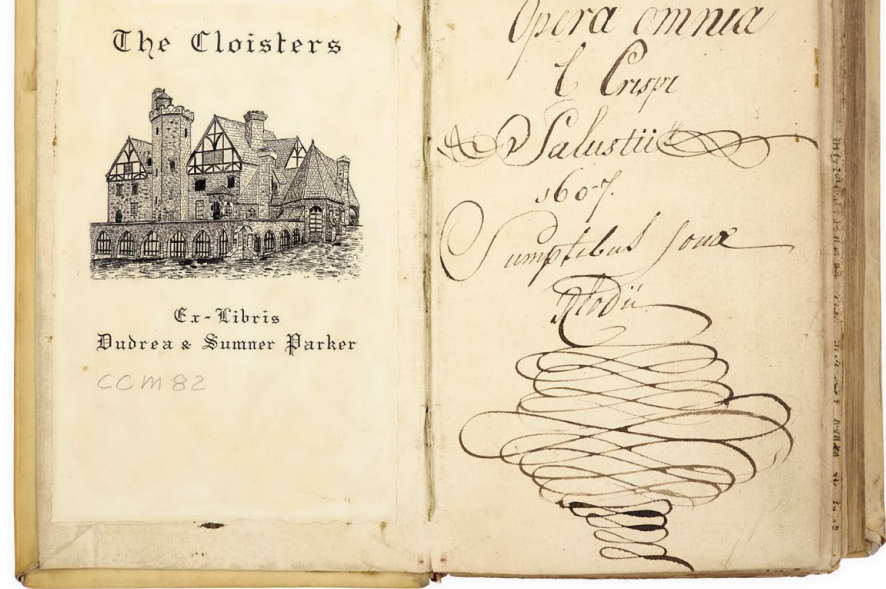 The Cloisters
Ex-Libris
Dudrea & Sumner Parker
CCM 82
Opera omnia
C Crispi
Salustii
1607.
Sumptibus Jonæ
Rhodii